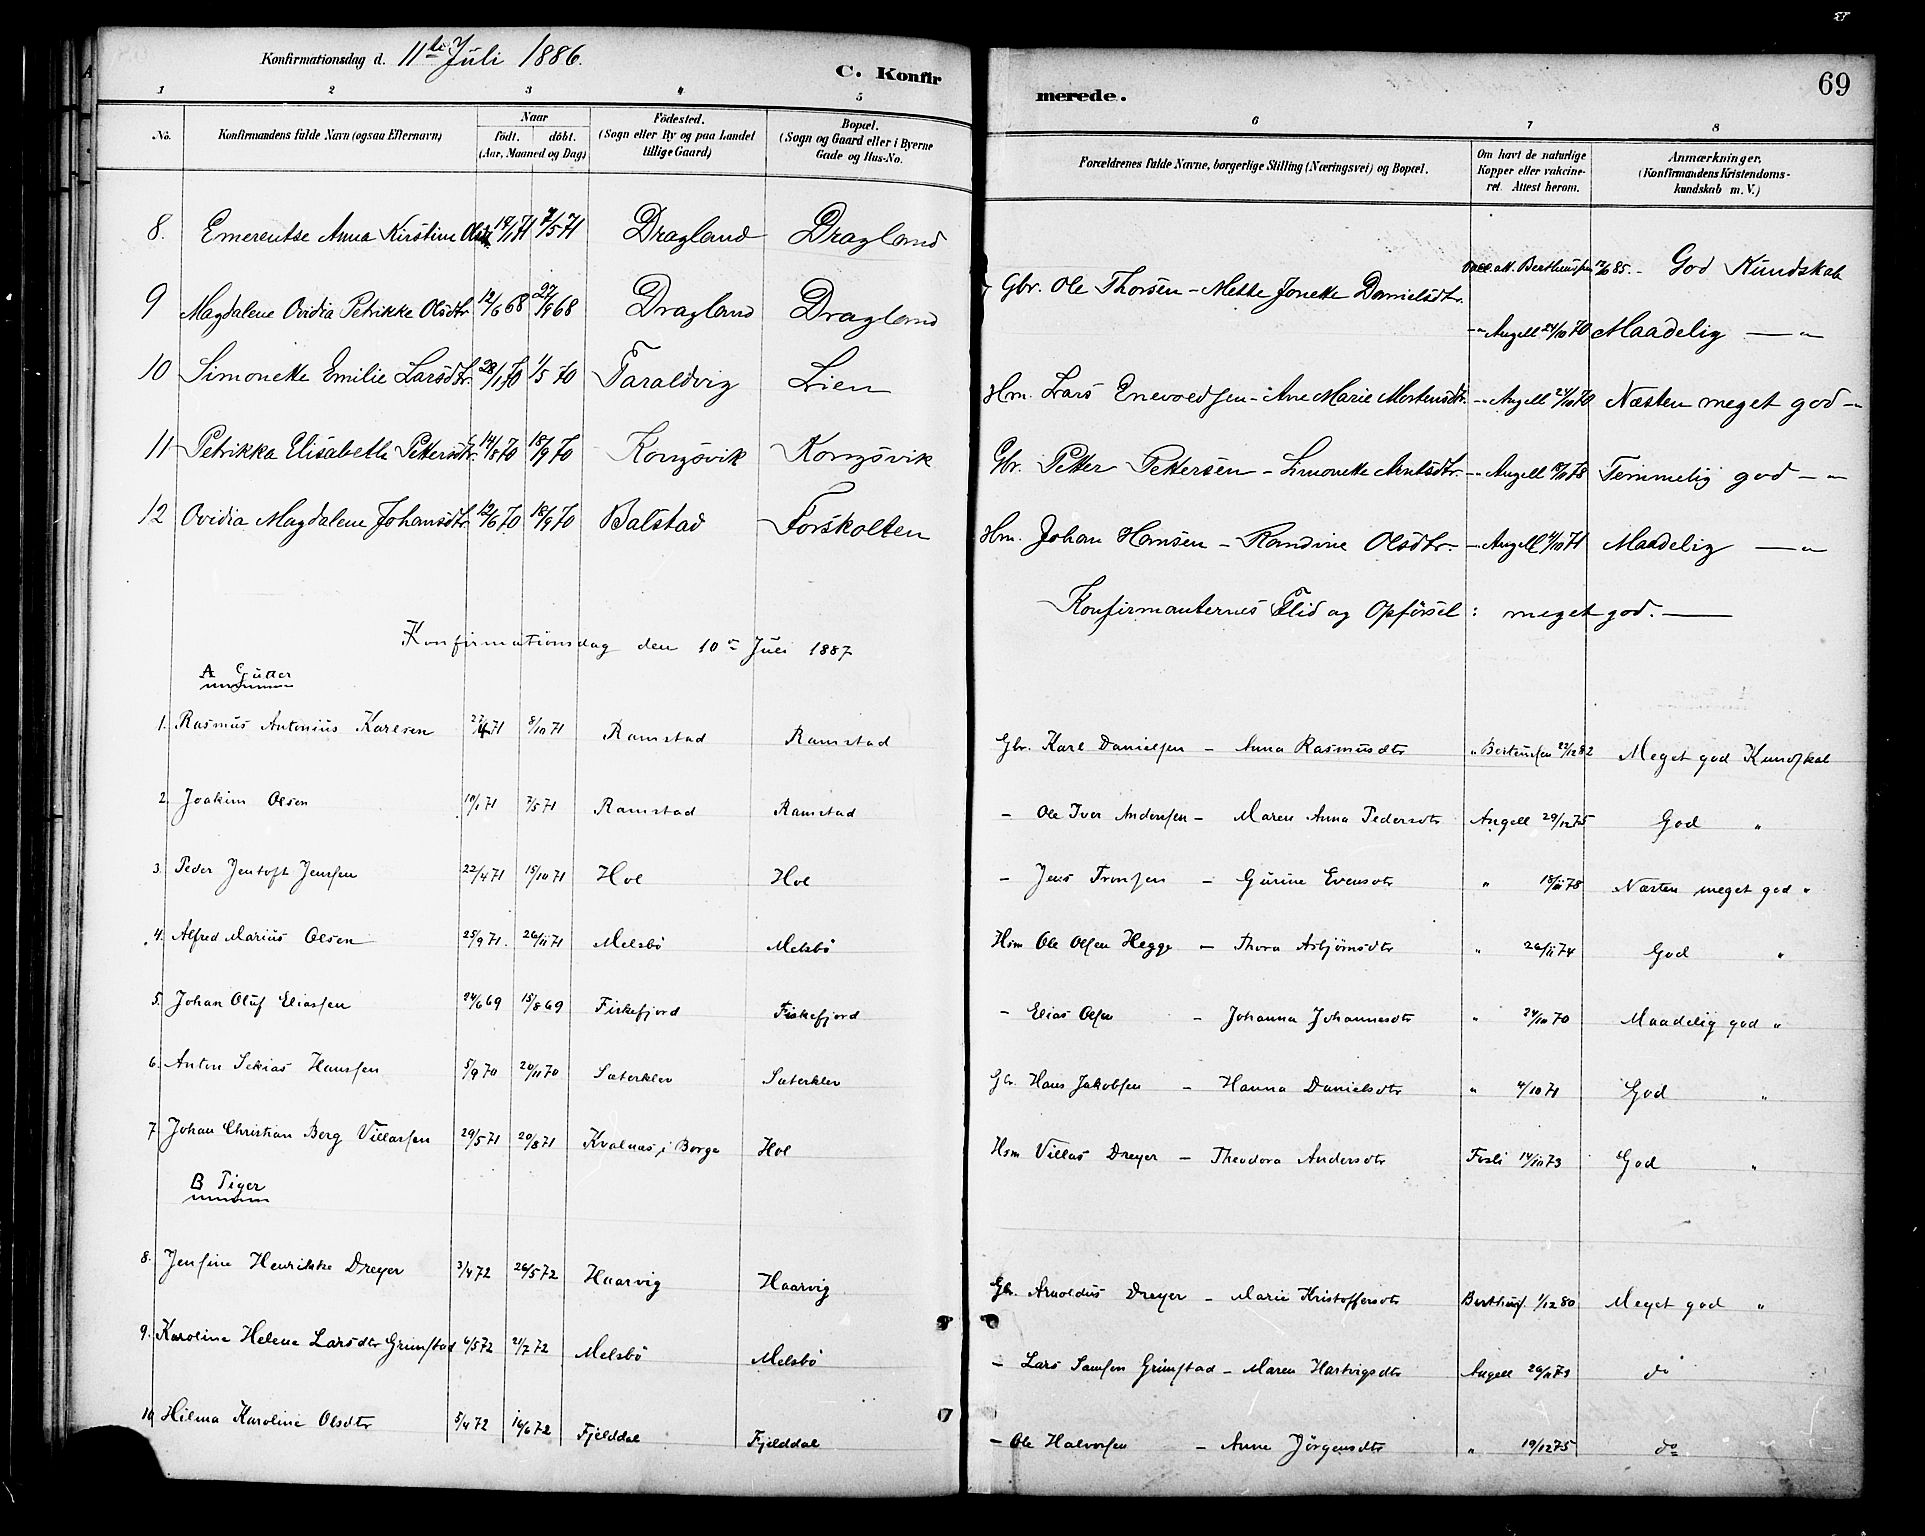 Konfirmationsdag d. 11te Juli 1886.
C. Konfir
merede.
69
1 2 3 4 5 6 7 8
No. Konfirmandens fulde Navn (ogsaa Efternavn) Naar födt. döbt. (Aar, Maaned og Dag) Födested. (Sogn eller By og paa Landet tillige Gaard) Bopæl. (Sogn og Gaard eller i Byerne Gade og Hus-No.
Forældrenes fulde Navne, borgerlige Stilling (Næringsvei) og Bopæl. Om havt de naturlige Kopper eller vakcineret. Attest herom. Anmærkninger. (Konfirmandens Kristendomskundskab m. V.)
8. Emerentse Anna Kirstine 19/1 71 7/5 71 Dragland Dragland
Gbr. Ole Thorsen - Mette Jonette Danielsdtr. God Kundskab
9 Magdalene Ovidia Petrikke Olsdtr. 12/6 68 27/9 68 Dragland Dragland
-"- Angell 24/10 70 Maadelig — "
10 Simonette Emilie Larsdtr. 28/1 70 1/5 70 Taraldvig Lien
Hm. Lars Enevoldsen - Ane Marie Mortensdtr. -"- Angell 24/10 70 Næsten meget god - "
11 Petrikka Elisabeth Pettersdtr. 14/8 70 18/9 70 Kongsvik Kongsvik
Gbr. Petter Pettersen - Simonette Arntsdtr. -"- Angell 78 Temmelig god - "
12 Ovidia Magdalene Johansdtr. 12/6 70 18/9 70 Balstad Forskolten
Hm. Johan Hansen - Randine Olsdtr. -"- Angell 4/10 71 Maadelig — "
Konfirmanternes Flid og Opførsel: meget god.
Konfirmationsdag den 10de Juli 1887
A Gutter
1. Rasmus Antonius Karlsen 27/4 71 8/10 71 Ramstad Ramstad
Gbr. Karl Danielsen - Anna Rasmusdtr " Berteusen 22/12 82 Meget god Kundskab
2. Joakim Olsen 10/1 71 7/5 71 Ramstad Ramstad
- Ole Iver Andersen - Maren Anna Pedersdtr Angell 29/12 75 God "
3. Peder Jentoft Jensen 22/4 71 15/10 71 Hol Hol
- Jens Tronsen - Gurine Evensdtr " 18/11 78 Næsten meget god "
4. Alfred Marius Olsen 25/9 71. 26/11 71 Melsbö Melsbö
Hsm Ole Olsen Hegge - Thora Asbjörnsdtr " 26/11 74 God "
5. Johan Oluf Eliassen 24/6 69 15/8 69 Fiskefjord Fiskefjord
- Elias Olsen - Johanna Johannesdtr " 24/10 70 Maadelig god "
6. Anton Sekias Hanssen 5/9 70 20/11 70 Sæterklev Sæterklev
Gbr. Hans Jakobsen - Hanna Danielsdtr " 4/10 71 God "
7 Johan Christian Berg Villassen 29/5 71 20/8 71 Kvalnæs, i Borge Hol
Hsm Villas Dreyer - Theodora Andersdtr Fosli 14/10 73 God "
B Piger
8. Jensine Henrikke Dreyer 3/4 72 26/5 72 Haarvig Haarvig
Gbr. Arnoldus Dreyer - Marie Kristoffersdtr Bertheus. 1/12 80 Meget god "
9. Karoline Helene Larsdtr Grimstad 6/5 72 21/7 72 Melsbö Melsbö
- Lars Samsen Grimstad - Maren Hartvigsdtr Angell 26/11 73 do
10 Hilma Karoline Olsdtr 5/4 72 16/6 72 Fjelddal Fjelddal
- Ole Halvorsen - Anne Jörgensdtr " 19/12 75 do